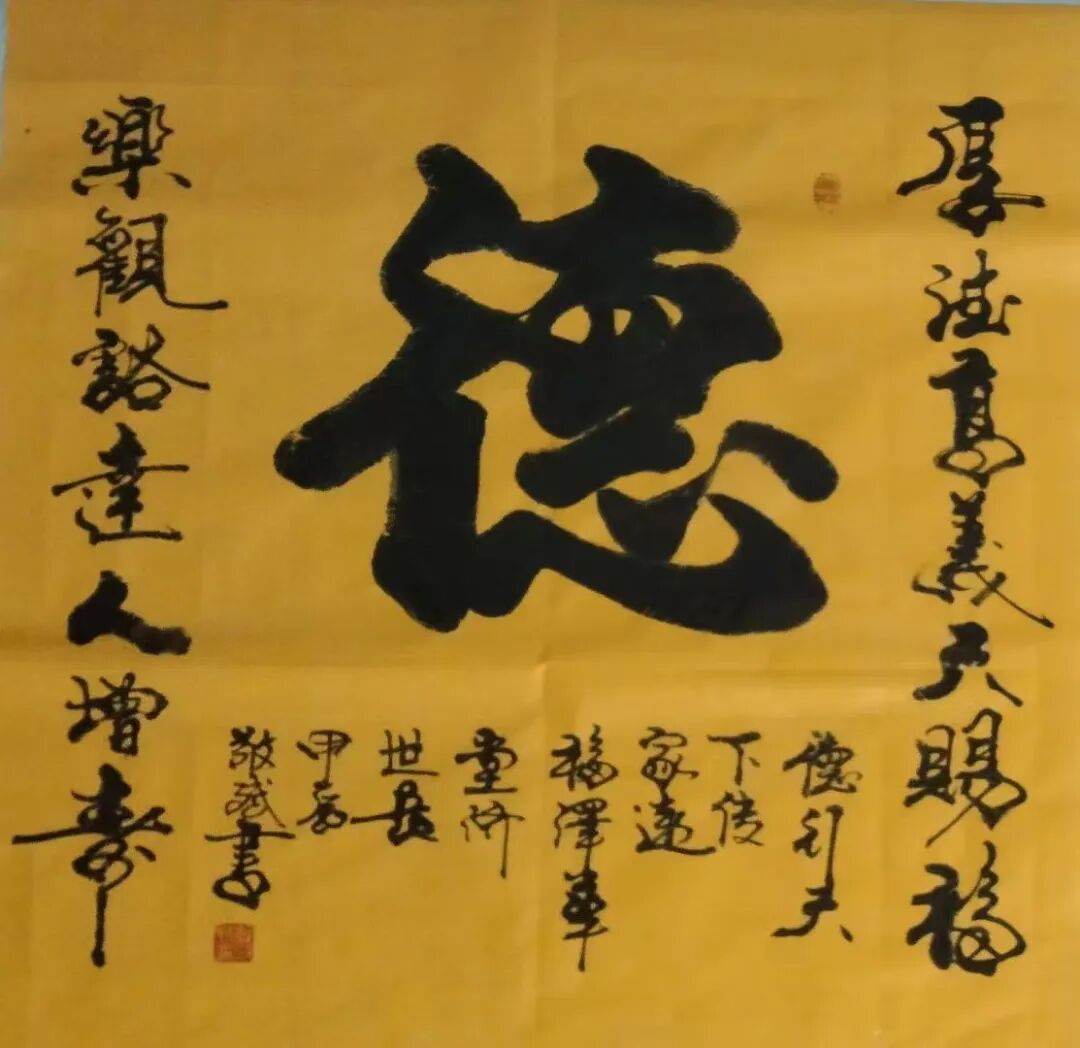 厚德高義天賜福
德
樂觀豁達人增壽
德行天
下傳
家遠
福澤華
堂濟
世長
甲辰
敬書